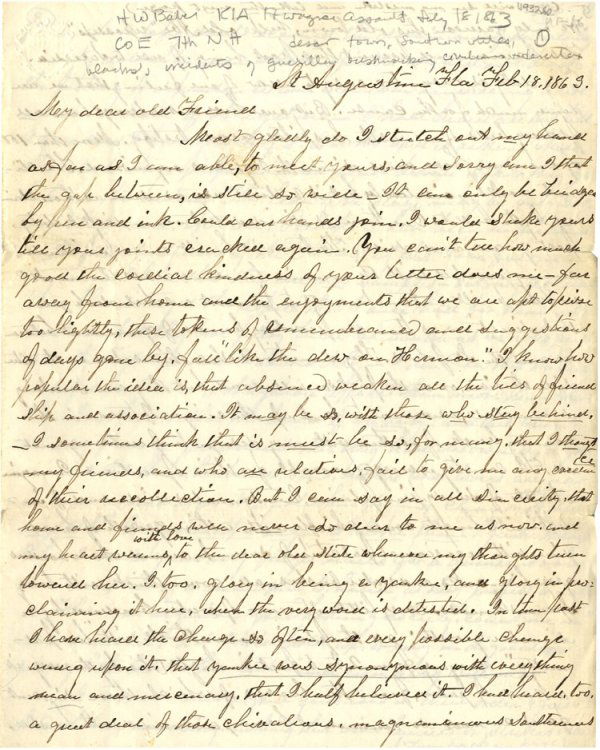 HW Baker KIA Ft Wagner Assault July 18 1863
Co E 7th NH deser town, Southron ladies, ①
blacks, incidents of guerilla bushwacking
St Augustine Fla Feb 18. 1863.
My dear old Friend
Most gladly do I stretch out my hand
as far as I am able, to meet yours, and sorry am I that
the gap between, is still so wide — It can only be bridged
by pen and ink. Could our hands join, I would shake yours
till your joints cracked again. You can't tell how much
good the cordial kindness of your letter does me — far
away from home and the enjoyments that we are apt to prize
too lightly, these tokens of remembrance and suggestions
of days gone by, fall "like the dew on Hermon." I know how
popular the idea is, that absence weaken all the ties of friend
ship and association. It may be so, with those who stay behind,
— I sometimes think that is must be so, for many, that I thought
my friends, and who are relatives, fail to give me any eviden
ce
of their recollection. But I can say in all sincerity, that
home and friends were never so dear to me as now. and
with love
my heart warms, to the dear old state whenever my thoughts turn
toward her. I, too, glory in being a Yankee, and glory in pro-
claiming it here, where the very word is detested. In time past
I have heard the change so often, and every possible change
wrung upon it, that yankee was synonymous with everything
mean and mercenary, that I half believed it. I had heard, too,
a great deal of those chivalrous, magnanimous Southrons